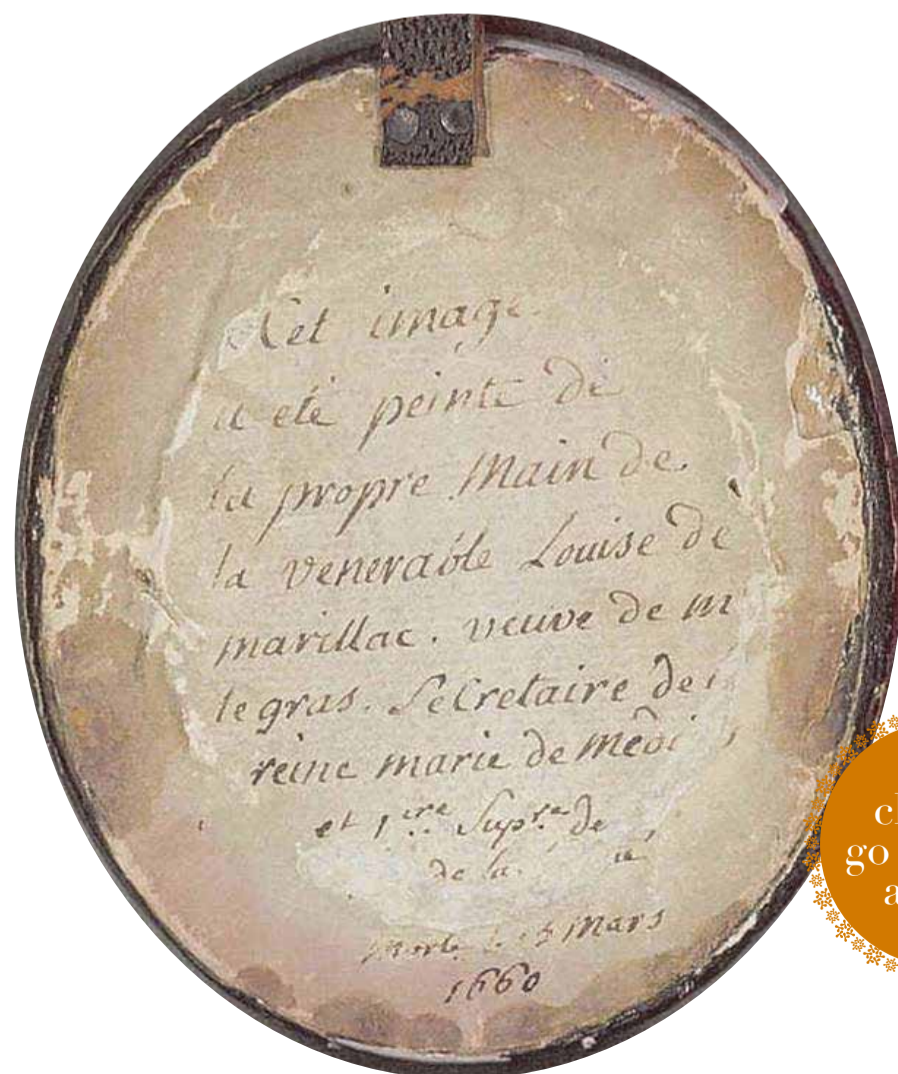 Cet image
a eté peinte de
la propre Main de
la venerable Louise de
marillac. veuve de M
le gras. Secretaire de
reine marie de Medi
et 1.ere Sup.re de
de la
Morte le 15 Mars
1660
go